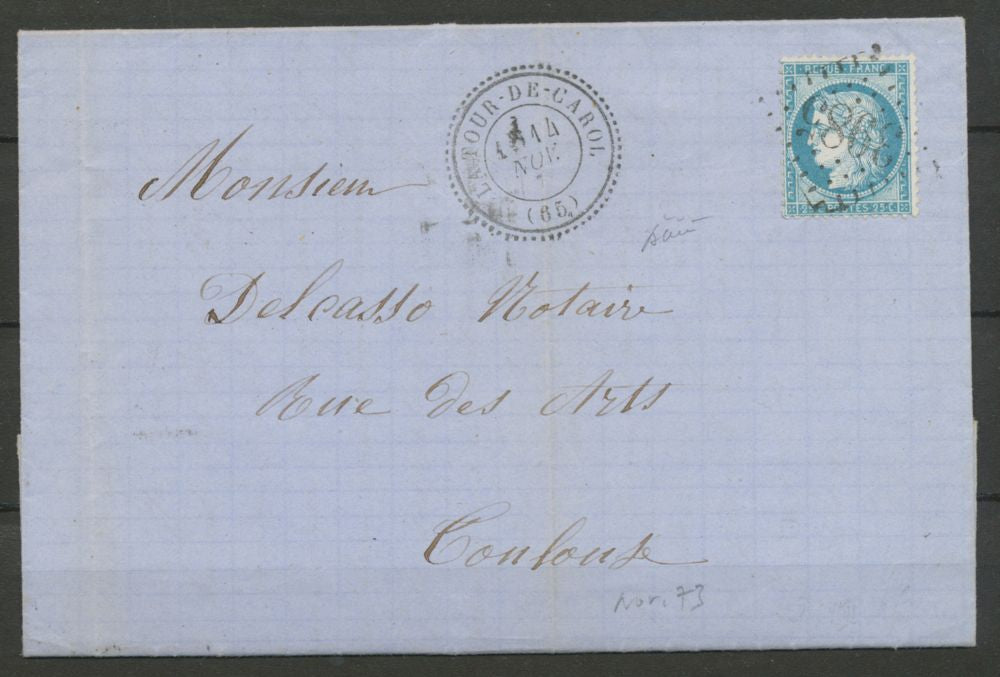 LATOUR-DE-CAROL
14
NOV.
(65)
REPUB. FRANC.
25 POSTES 25.C.
Monsieur
Delcasso Notaire
Rue des Arts
Toulouse
Nov. 73